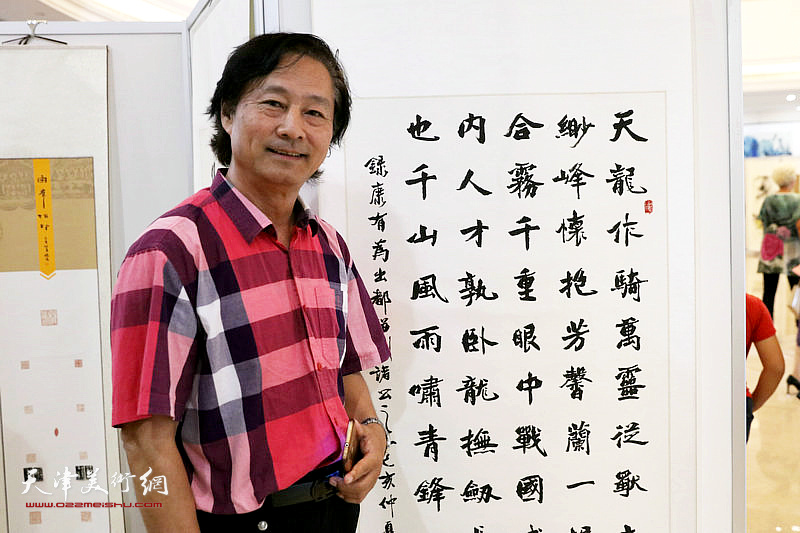 天龍作騎萬靈從獻
緲峰懷抱芳馨蘭一
合霧千重眼中戰國
内人才孰卧龍撫劒
也千山風雨嘯青鋒
錄康有為出都留
諸公
亥仲夏
天津美術網
www.022meishu.com